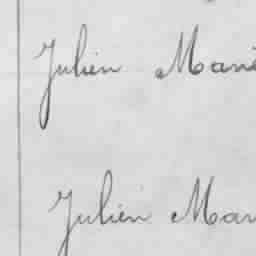 Julien Marie
Julien Mar